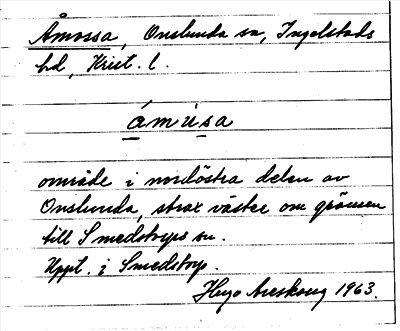 Åmossa, Onslunda sn, Ingelstads
hd, Krist. l.
ámùsa
område i nordöstra delen av
Onslunda, strax väster om gränsen
till Smedstorps sn.
Uppt. i Smedstorp.
Hugo Areskoug 1963.